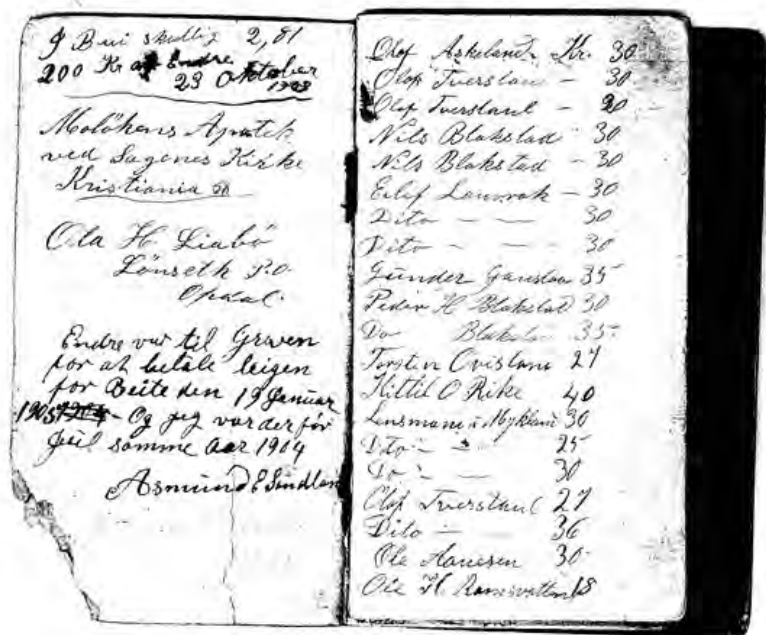 J Brui skuldig 2,81
200 Kr af Endre
23 Oktober
1903
Apotek
ved Sagenes Kirke
Kristiania
Ola H. Liabö
Lönseth P.O.
Opdal.
Endre var til Greven
for at betale leigen
for Beite den 19 Januar
1905 1904 - Og jeg var der för
Juel samme Aar 1904
Asmund E Sandland
Olof Askeland Kr. 30
Olof Tversland - 30
Olof Tversland - 30
Nils Blakstad 30
Nils Blakstad - 30
Eilef - 30
Dito - - 30
Dito - - 30
Gunder 35
Peder H Blakstad 30
Do Blakstad 35
Torsten Ovisland 27
Kittil O Rike 40
Lensmann i Mykland 30
Dito - - 25
Do - - 30
Olof Tversland 27
Dito - 36
Ole Hansen 30
Ole H. Ramsvatten 18